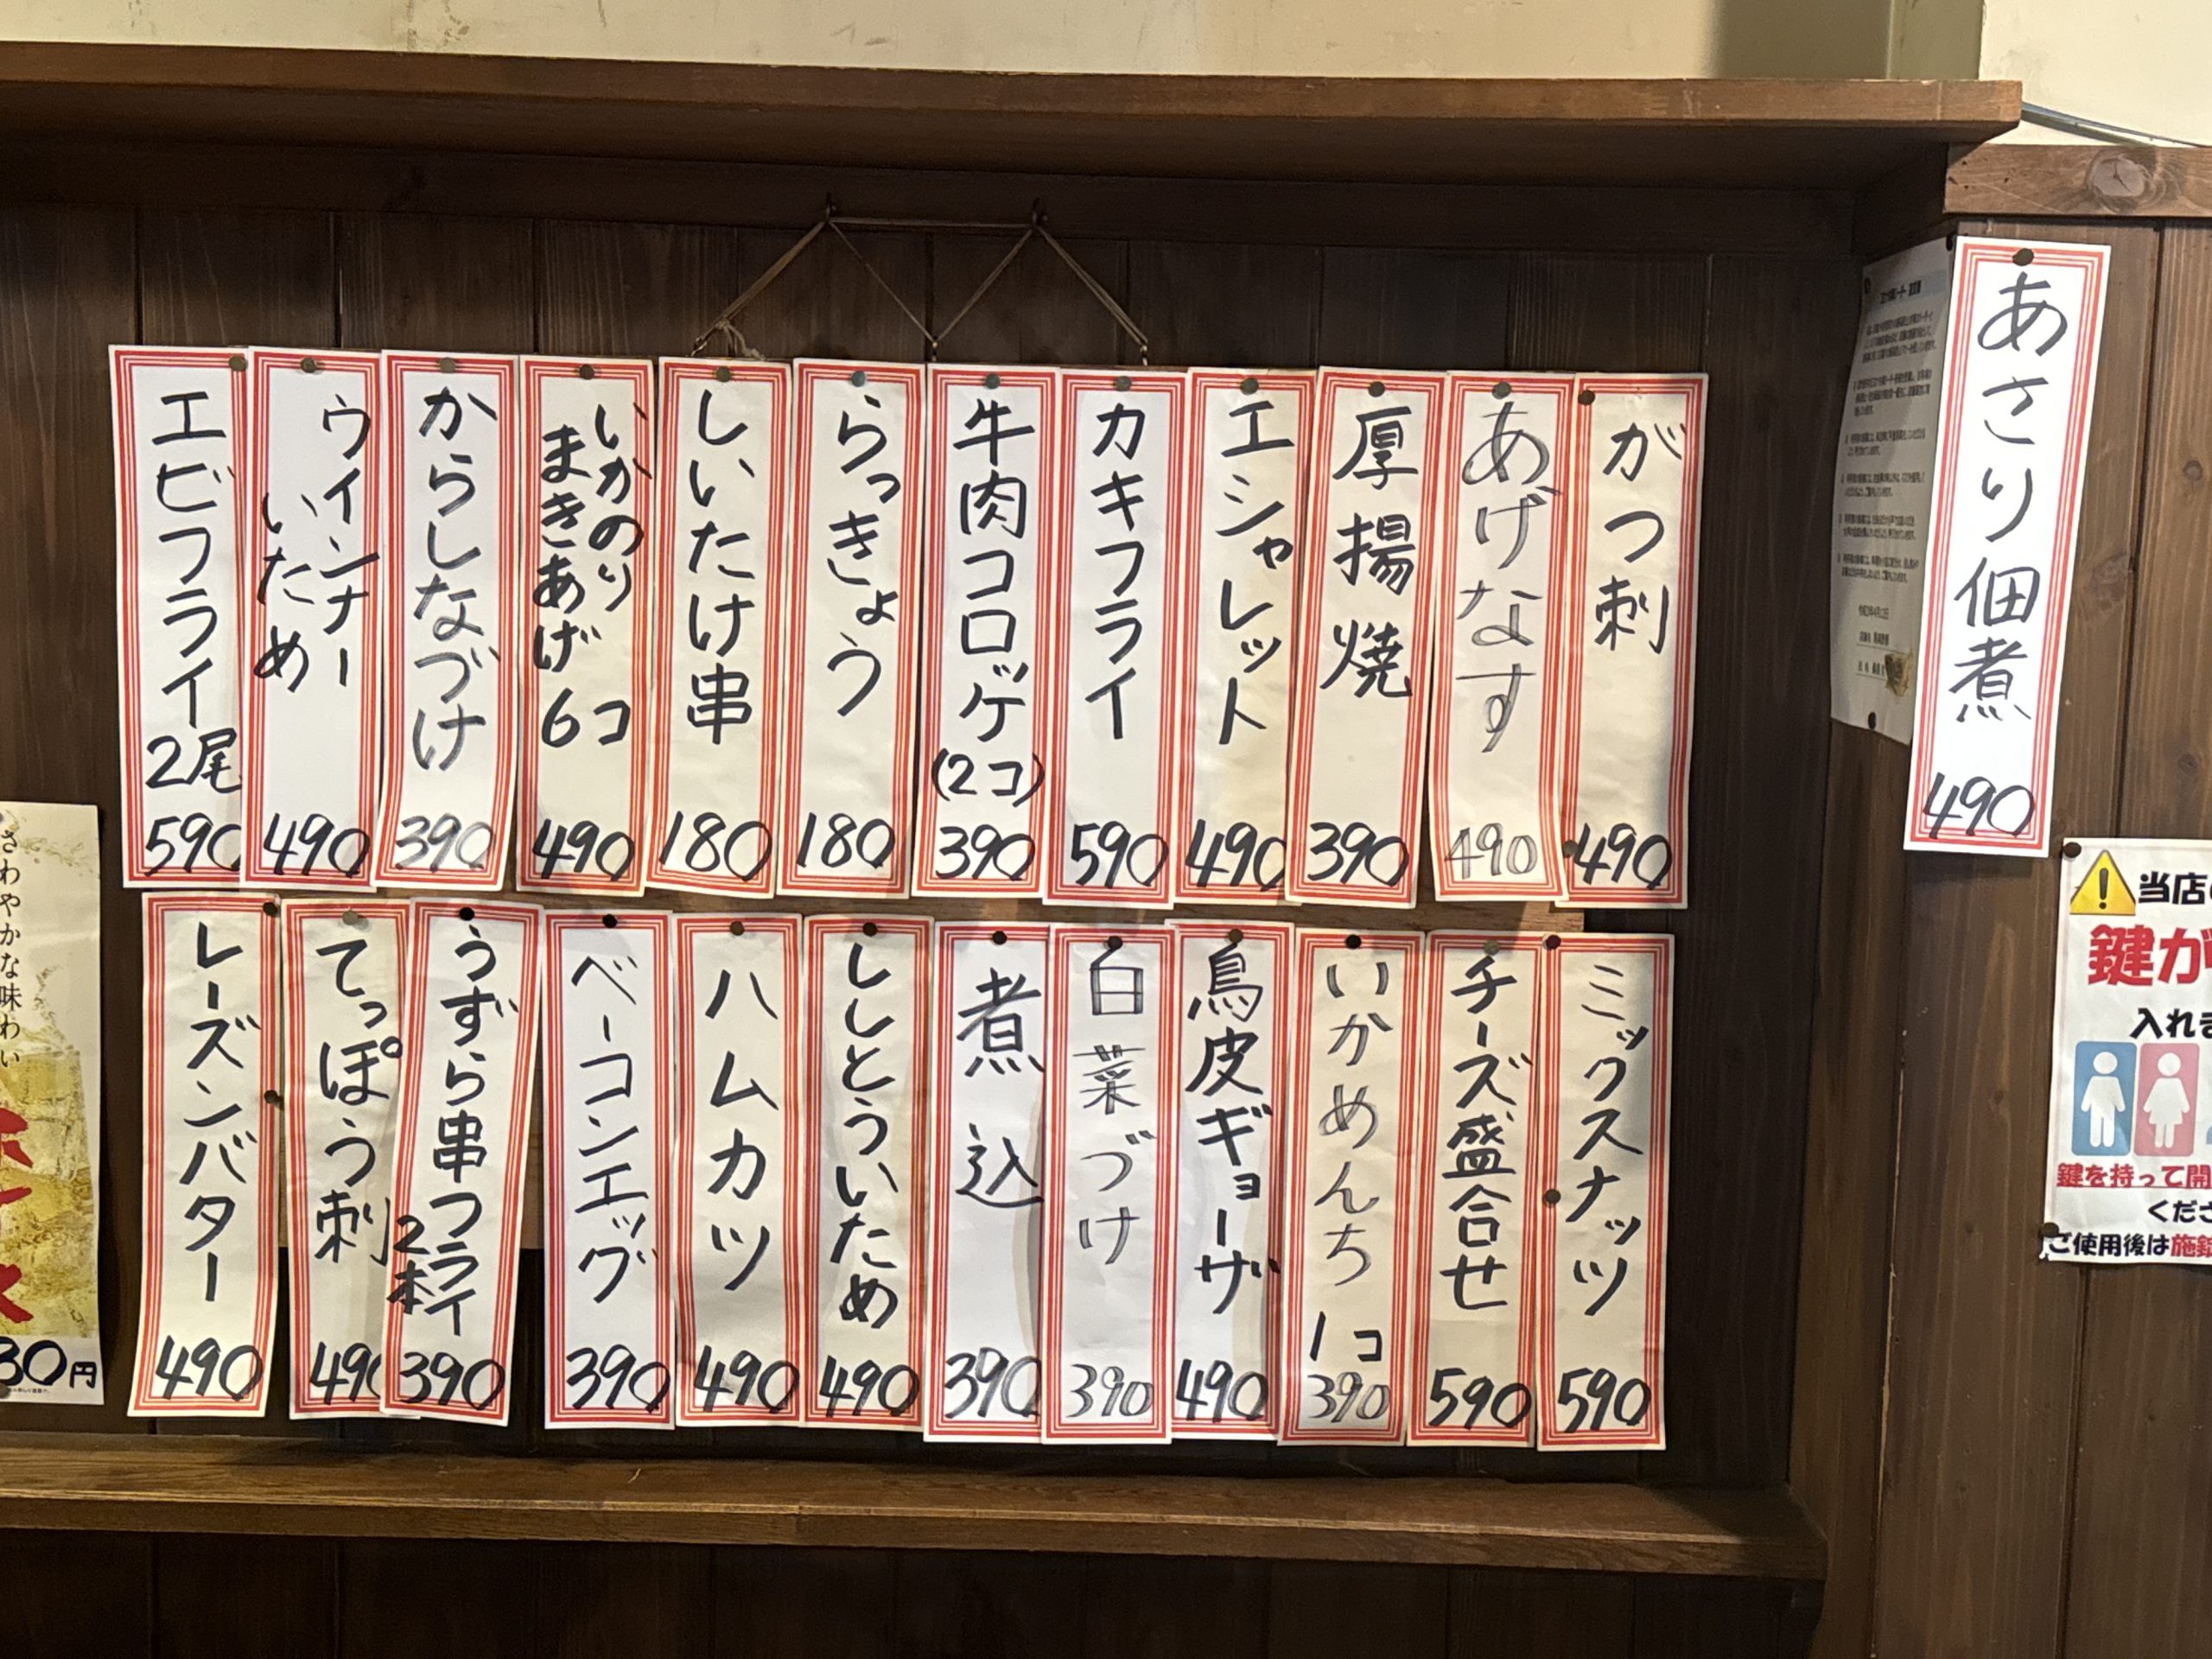 あさり佃煮
490
がつ刺
490
あげなす
490
厚揚焼
390
エシャレット
490
カキフライ
590
牛肉コロッケ
(2コ)
390
らっきょう
180
しいたけ串
180
いかのり
まきあげ
6コ
490
からしなづけ
390
ウインナー
いため
490
エビフライ2尾
590
ミックスナッツ
590
チーズ盛合せ
590
いかめんち
1コ
390
鳥皮ギョーザ
490
白菜づけ
390
煮込
390
ししとういため
490
ハムカツ
490
ベーコンエッグ
390
うずら串フライ
2本
390
てっぽう刺
490
レーズンバター
490
さわやかな味わい
30円
当店
鍵が
入れ
鍵を持って開
くださ
ご使用後は施錠